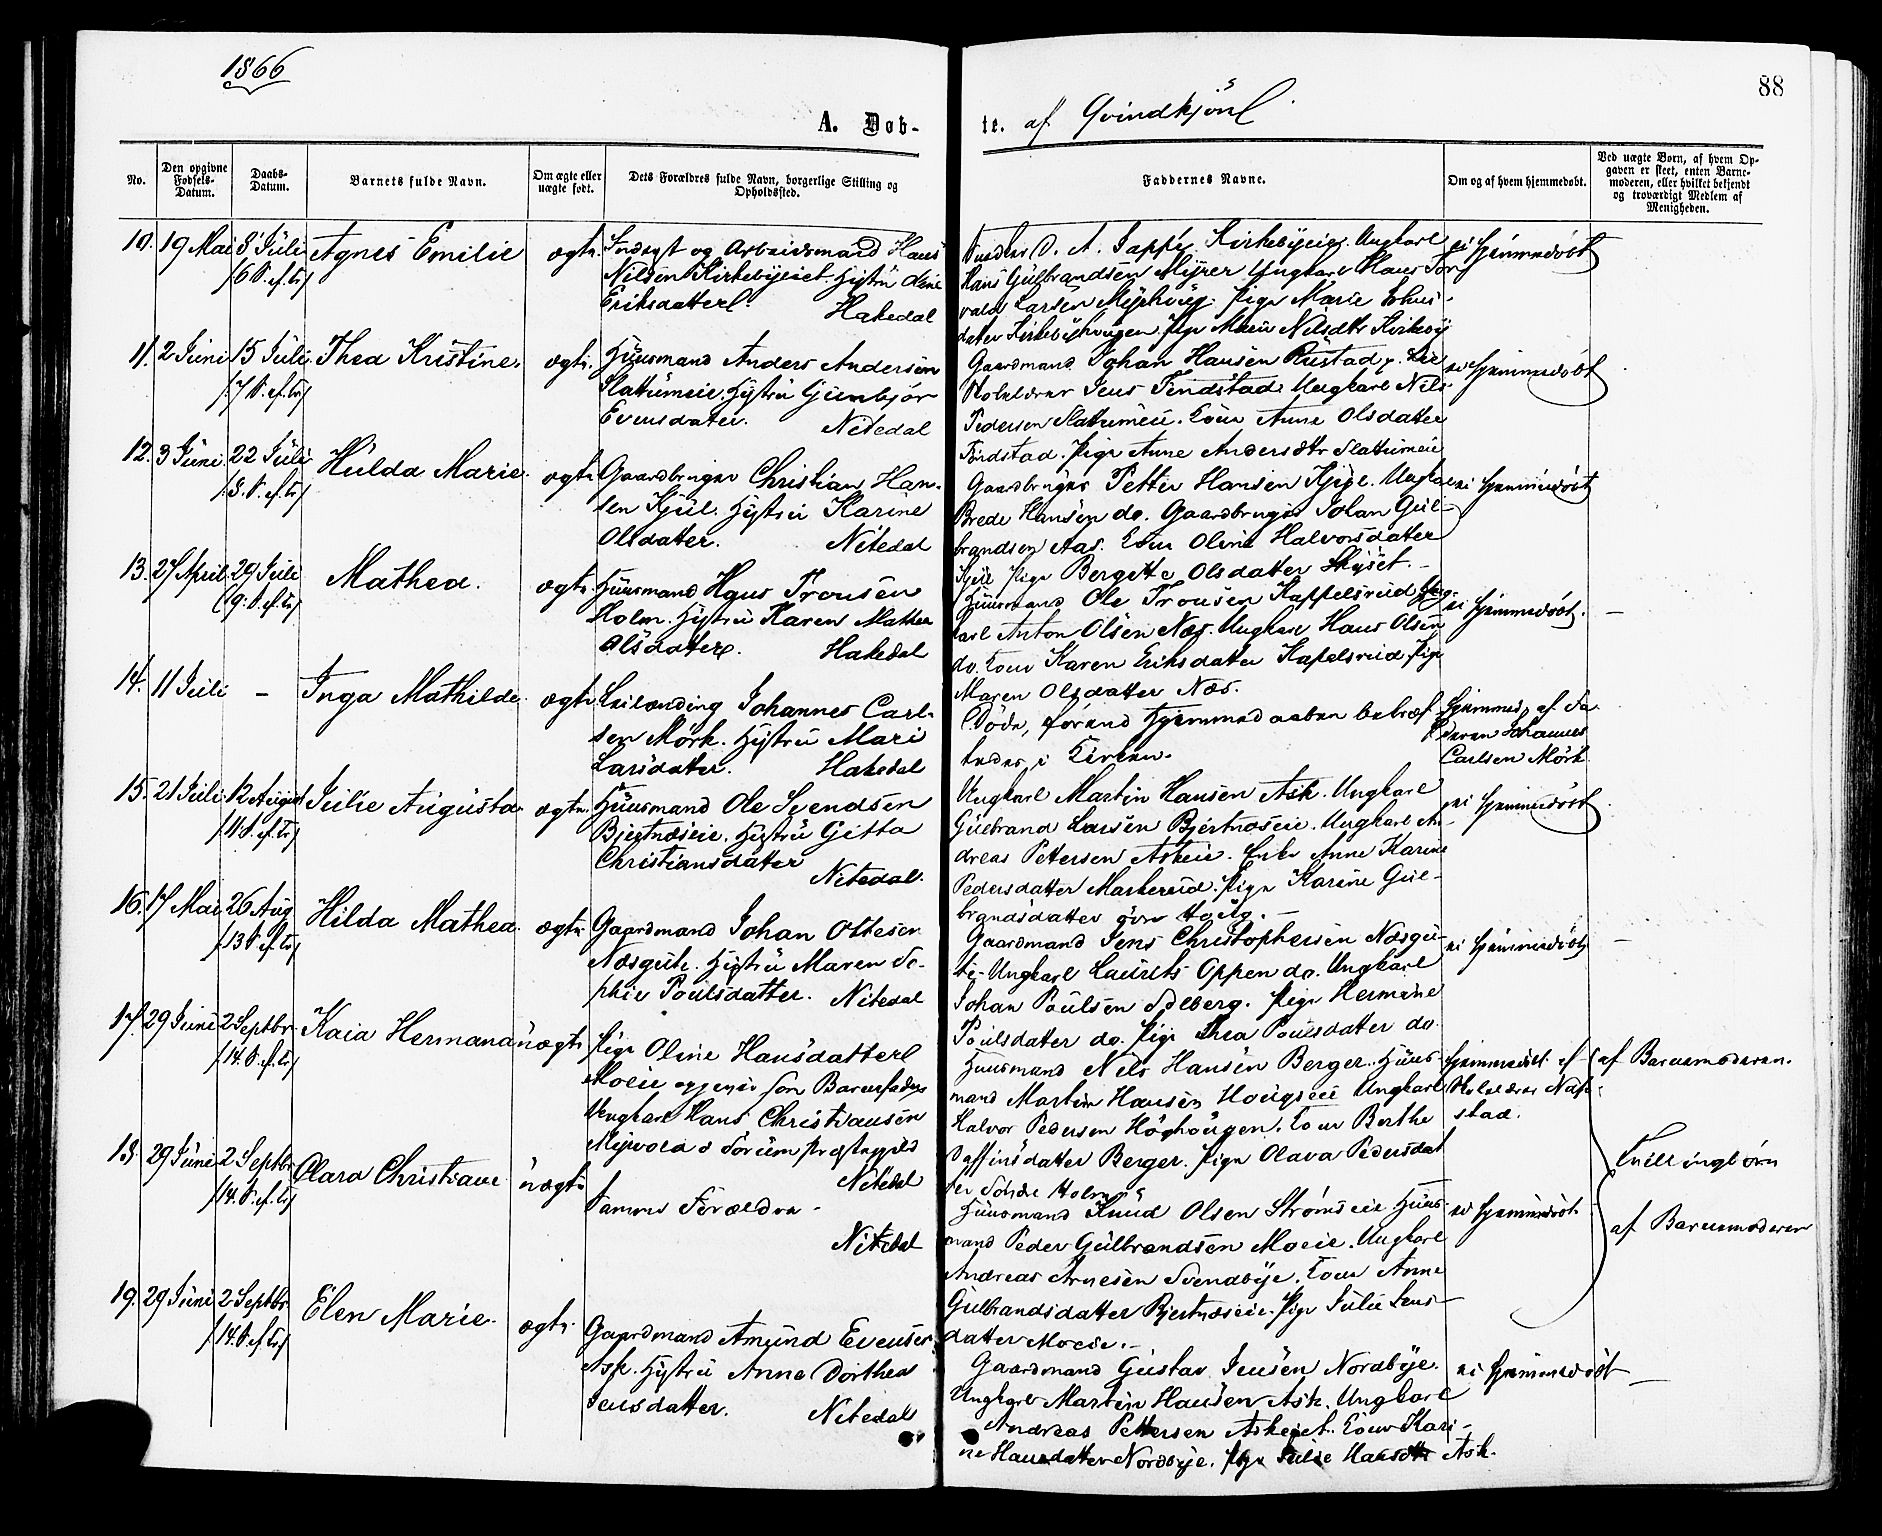 1866
88
A. Døb-
te. af Qvindkjøn
No.
Den opgivne Fødsels-Datum.
Daabs-Datum.
Barnets fulde Navn.
Om ægte eller uægte født.
Dets Forældres fulde Navn, borgerlige Stilling og Opholdssted.
Faddernes Navne.
Om og af hvem hjemmedøbt.
Ved uægte Børn, af hvem Op-
gaven er skeet, enten Barne-
moderen, eller hvilket bekjendt
og troværdigt Medlem af
Menigheden.
10. 19 Mai 8 Juli Agnes Emilie ægte
/6 S. ef. Tr/
Inderst og Arbeidsmand Hans
Nilsen Kirkebyeiet. Hustru Oline
Eriksdatter.
Hakedal
D. A. Jappe, Kirkebyeie. Ungkarl
Hans Gulbrandsen Myrer Ungkarl Hans Tor
vald Larsen Myrhaug. Pige Marie
datter Kirkebyhaugen. Pige Marie Nilsdtr Kirkeby
ei hjemmedøbt
11. 2 Juni 15 Juli Thea Kristine. ægte.
/7 S. ef. Tr/
Huusmand Anders Andersen
Slattumeie. Hustru Gunbjør
Evensdatter.
Nitedal
Gaardmand Johan Hansen Rustad.
Skolelærer Jens Tendstad. Ungkarl Nils
Pedersen Slattumeie. Kone Anne Olsdatter
Tendstad. Pige Anne Andersdtr Slattumeie
ei hjemmedøbt
12. 3 Juni 22 Juli Hulda Marie. ægte
/8. S. ef. Tr/
Gaardbruger Christian Han-
sen Kjul. Hustru Karine
Olsdatter.
Nitedal
Gaardbruger Petter Hansen Kjul. Ungkarl
Brede Hansen do. Gaardbruger Johan Gul-
brandsen Aas. Kone Oline Halvorsdatter
Kjul Pige Bergitte Olsdatter Skyset.
ei hjemmedøbt
13. 27 April. 29 Juli Mathea. ægte
/9. S. ef. Tr/
Huusmand Hans Tronsen
Holm. Hustru Karen Mathea
Olsdatter.
Hakedal
Huusmand Ole Tronsen Kappelsrud Ung-
karl Anton Olsen Næs. Ungkarl Hans Olsen
do. Kone Karen Eriksdatter Kapelsrud Pige
Maren Olsdatter Næs.
ei hjemmedøbt.
14. 11 Juli - Inga Mathilde ægte
Leilænding Johannes Carl-
sen Mørk. Hustru Mari
Larsdatter.
Hakedal
Døde, førend Hjemmedaaben bekræf-
tedes i Kirken.
Hjemmed. af Fa-
deren Johannes
Carlsen Mørk
15. 21 Juli 12 August Julie Augusta ægte
/11 S. ef. Tr/
Huusmand Ole Svendsen
Bjertnæseie. Hustru Gitta
Christiansdatter
Nitedal.
Ungkarl Martin Hansen Ask. Ungkarl
Gulbrand Larsen Bjertnæseie. Ungkarl An-
dreas Pettersen Askeie. Enke Anne Karine
Pedersdatter Markerud. Pige Karine Gul-
brandsdatter øvre Houg.
ei hjemmedøbt
16. 17 Mai 26 Aug Hilda Mathea. ægte
/13 S. ef. Tr/
Gaardmand Johan Ottesen
Næsgute. Hustru Maren So-
phie Poulsdatter.
Nitedal
Gaardmand Jens Christophersen Næsgu-
te. Ungkarl Laurits Oppen do. Ungkarl
Johan Poulsen Solberg. Pige Hermine
Poulsdatter do. Pige Thea Poulsdatter do.
ei hjemmedøbt
17. 29 Juni 2 Septbr Kaia Hermana uægte
/14. S. ef. Tr/
Pige Oline Hansdatter
Moeie opgivet som Barnefader
Ungkarl Hans Christiansen
Meivold i Sørum Præstegjeld
Nitedal
Huusmand Nils Hansen Berger. Huus-
mand Martin Hansen Hougseie Ungkarl
Halvor Pedersen Høghougen. Kone Berthe
datter Berger. Pige Olava Pedersdat
ter Søndre Holm
Hjemmedøbt af
Skolelærer
stad.
af Barnemoderen.
18. 29 Juni 2 Septbr Clara Christiane uægte
/14. S. ef. Tr/
Samme Forældre
Nitedal
Huusmand Knud Olsen Strømseie Huus
mand Peder Gulbrandsen Moeie. Ungkarl
Andreas Arnesen Svendbye. Kone Anne
Gulbrandsdatter Bjertnæseie. Pige Julie Jens-
datter Moeie.
ei hjemmedøbt
Tvillingbørn
af Barnemoderen
19. 29 Juni 2 Septbr Elen Marie. ægte
/14. S. ef. Tr/
Gaardmand Amund Evensen
Ask. Hustru Anne Dorthea
Jensdatter.
Nitedal
Gaardmand Gustav Jensen Nordbye.
Ungkarl Martin Hansen Ask. Ungkarl
Andreas Pettersen Askeiet. Kone Kari-
ne Hansdatter Nordbye. Pige Julie Hansdtr Ask.
ei hjemmedøbt